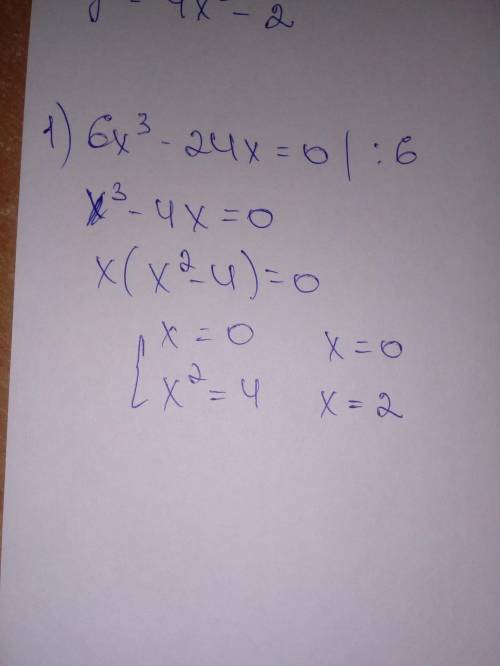 4x - 2
1) 6x³ - 24x = 0 | : 6
x³ - 4x = 0
x(x² - 4) = 0
[ x = 0 x = 0
x² = 4 x = 2